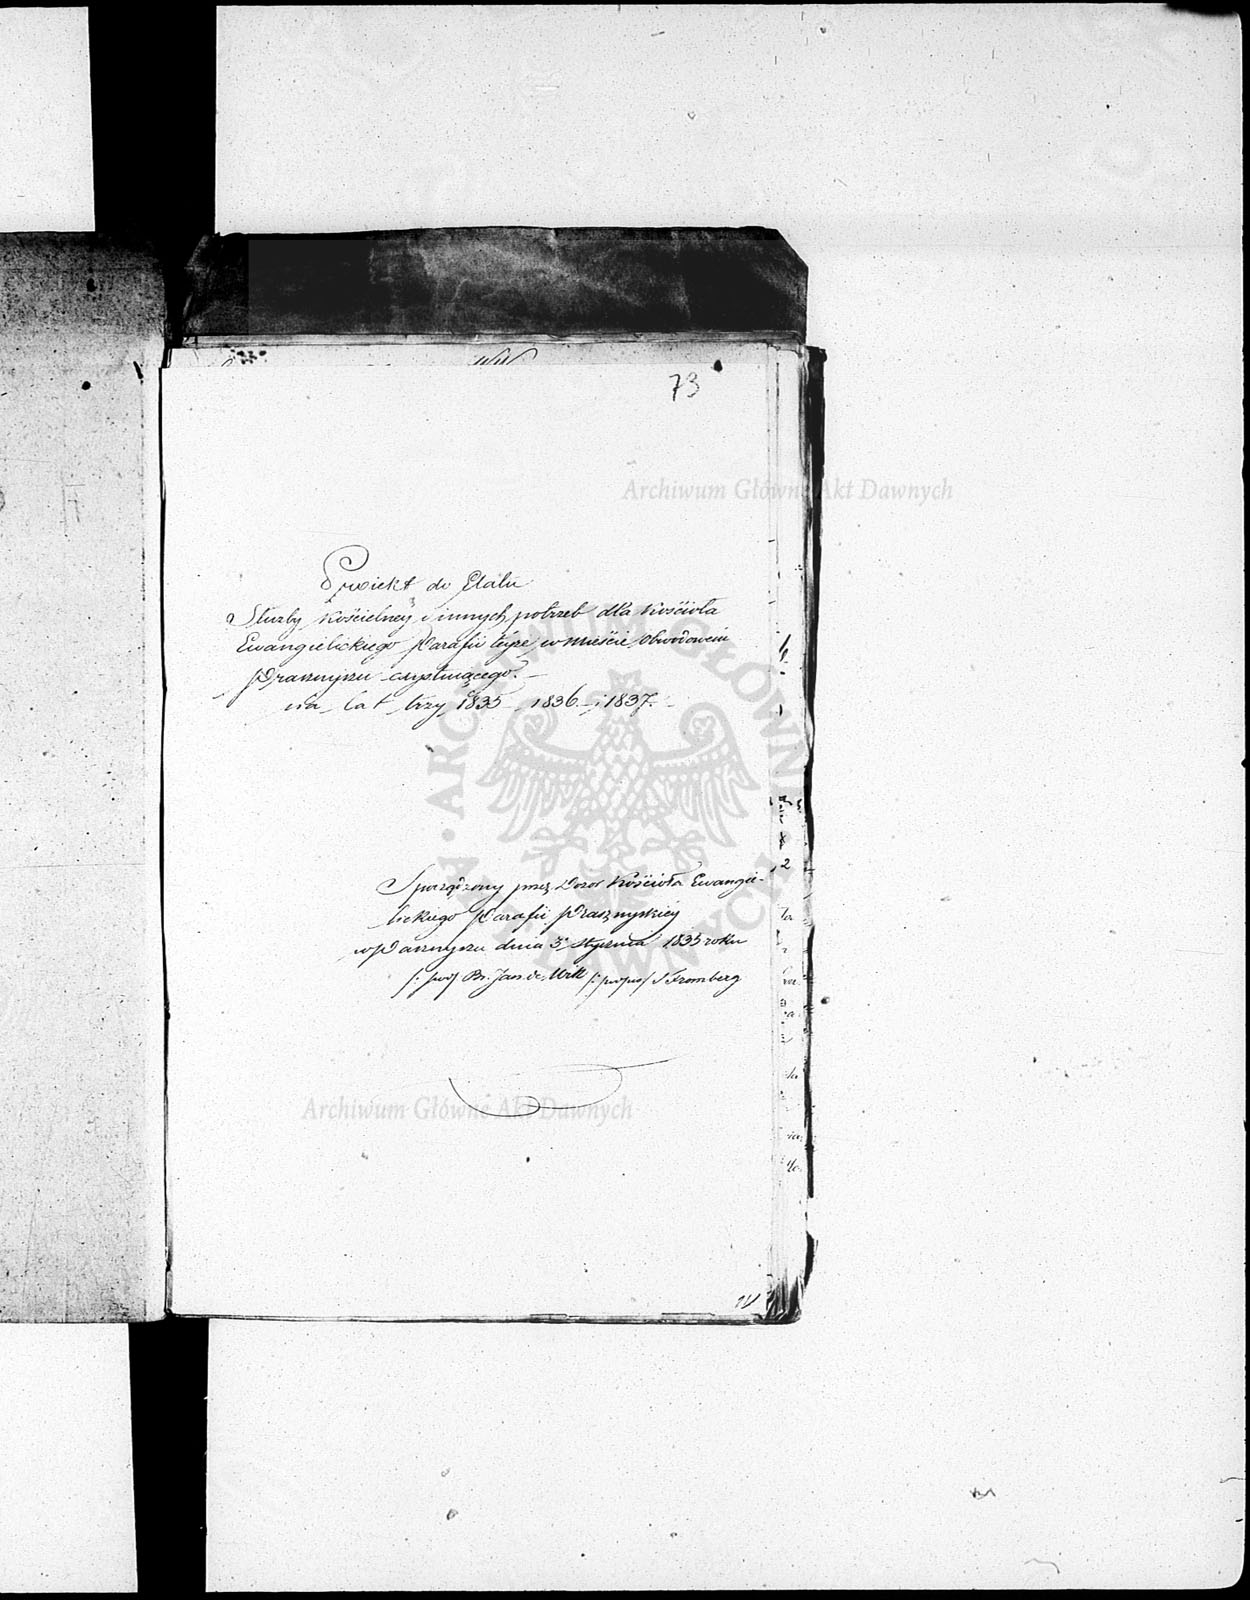 73
Archiwum Główne Akt Dawnych
Projekt do Etatu
Służby Kościelney i innych potrzeb dla Kościoła
Ewangielickiego Parafii teyże w mieście Obwodowem
Prasnyszu exystuiącego.
na lat trzy 1835 1836 i 1837.
ARCHIWUM GŁÓWNE AKT DAWNYCH
Sporządzony przez Dozor Kościoła Ewangie-
lickiego Parafii Prasznyskiéy
w Prasnyszu dnia 3 Stycznia 1835 roku
Jan de Witt Fromberg
Archiwum Główne Akt Dawnych